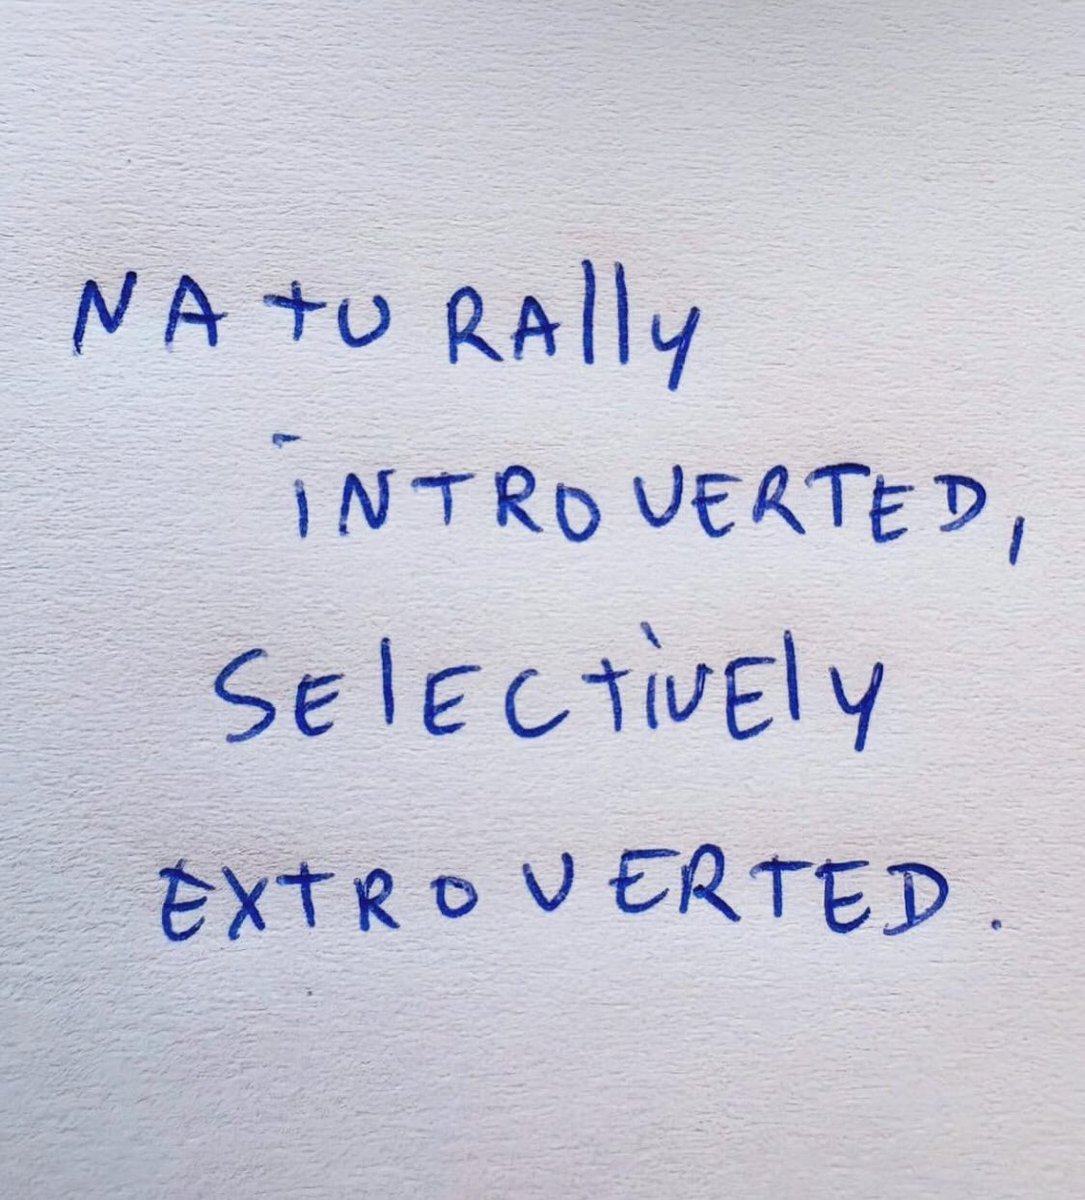 NAtuRAlly
iNTROVERTED,
SElECtiVEly
EXTROVERTED.